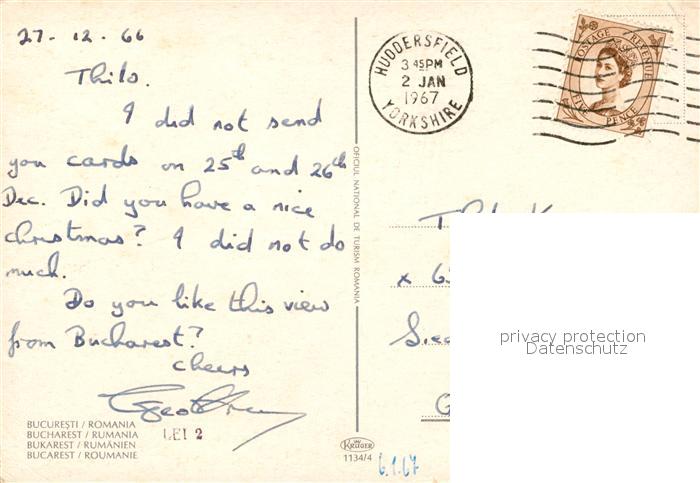 27-12-66
Thilo.
I did not send
you cards on 25th and 26th
Dec. Did you have a nice
christmas? I did not do
much.
Do you like this view
from Bucharest?
cheers
Geoffrey
BUCUREȘTI / ROMANIA
BUCHAREST / RUMANIA
BUKAREST / RUMÄNIEN
BUCAREST / ROUMANIE
LEI 2
OFICIUL NATIONAL DE TURISM ROMANIA
KRÜGER
1134/4
6.1.67
HUDDERSFIELD
3 45PM
2 JAN
1967
YORKSHIRE
POSTAGE REVENUE
FIVE PENCE
x 65
privacy protection
Datenschutz